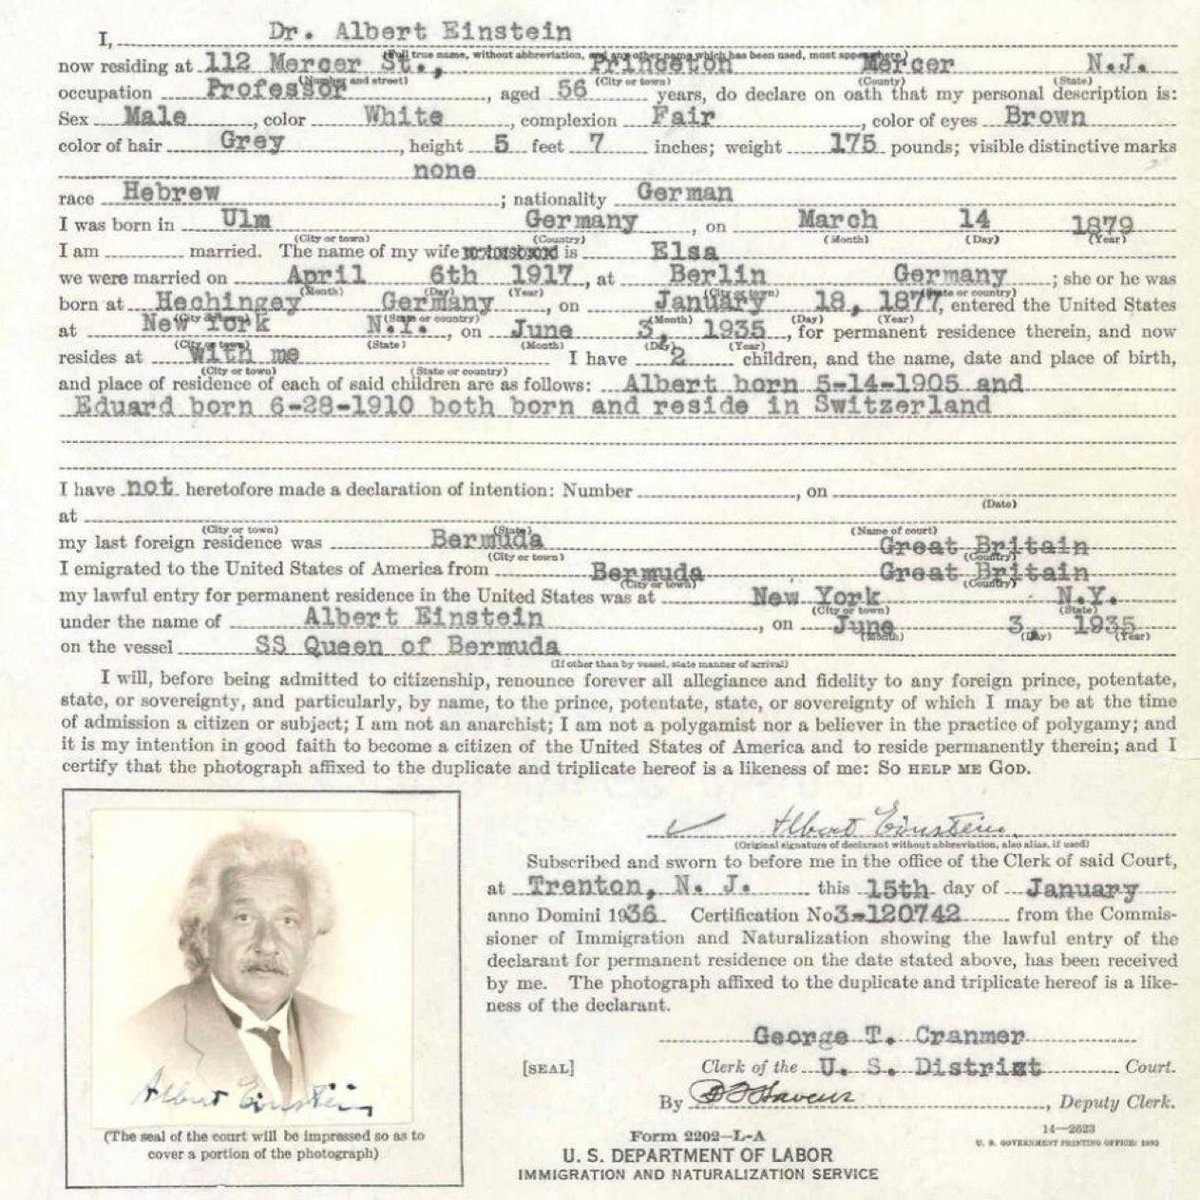 I, Dr. Albert Einstein
(Full true name, without abbreviation, and any other name which has been used, must appear here.)
now residing at 112 Mercer St., Princeton Mercer N.J.
(Number and street) (City or town) (County) (State)
occupation Professor, aged 56 years, do declare on oath that my personal description is:
Sex Male, color White, complexion Fair, color of eyes Brown
color of hair Grey, height 5 feet 7 inches; weight 175 pounds; visible distinctive marks
none
race Hebrew; nationality German
I was born in Ulm Germany, on March 14 1879
(City or town) (Country) (Month) (Day) (Year)
I am married. The name of my wife is Elsa
we were married on April 6th 1917, at Berlin Germany; she or he was
(Month) (Day) (Year) (City or town) (State or country)
born at Hechingey Germany, on January 18, 1877, entered the United States
(City or town) (State or country) (Month) (Day) (Year)
at New York N.Y., on June 3, 1935, for permanent residence therein, and now
(City or town) (State) (Month) (Day) (Year)
resides at with me I have 2 children, and the name, date and place of birth,
(City or town) (State or country)
and place of residence of each of said children are as follows: Albert born 5-14-1905 and
Eduard born 6-28-1910 both born and reside in Switzerland
I have not heretofore made a declaration of intention: Number, on
(Date)
at
(City or town) (State) (Name of court)
my last foreign residence was Bermuda Great Britain
(City or town) (Country)
I emigrated to the United States of America from Bermuda Great Britain
(City or town) (Country)
my lawful entry for permanent residence in the United States was at New York N.Y.
(City or town) (State)
under the name of Albert Einstein, on June 3, 1935
(Month) (Day) (Year)
on the vessel SS Queen of Bermuda
(If other than by vessel, state manner of arrival)
I will, before being admitted to citizenship, renounce forever all allegiance and fidelity to any foreign prince, potentate,
state, or sovereignty, and particularly, by name, to the prince, potentate, state, or sovereignty of which I may be at the time
of admission a citizen or subject; I am not an anarchist; I am not a polygamist nor a believer in the practice of polygamy; and
it is my intention in good faith to become a citizen of the United States of America and to reside permanently therein; and I
certify that the photograph affixed to the duplicate and triplicate hereof is a likeness of me: SO HELP ME GOD.
Albert Einstein
(Original signature of declarant without abbreviation, also alias, if used)
Subscribed and sworn to before me in the office of the Clerk of said Court,
at Trenton, N. J. this 15th day of January
anno Domini 1936. Certification No 3-120742 from the Commis-
sioner of Immigration and Naturalization showing the lawful entry of the
declarant for permanent residence on the date stated above, has been received
by me. The photograph affixed to the duplicate and triplicate hereof is a like-
ness of the declarant.
George T. Cranmer
[SEAL] Clerk of the U. S. District Court.
By, Deputy Clerk.
Form 2202-L-A
U. S. DEPARTMENT OF LABOR
IMMIGRATION AND NATURALIZATION SERVICE
14-2623
U. S. GOVERNMENT PRINTING OFFICE:
Albert Einstein
(The seal of the court will be impressed so as to
cover a portion of the photograph)